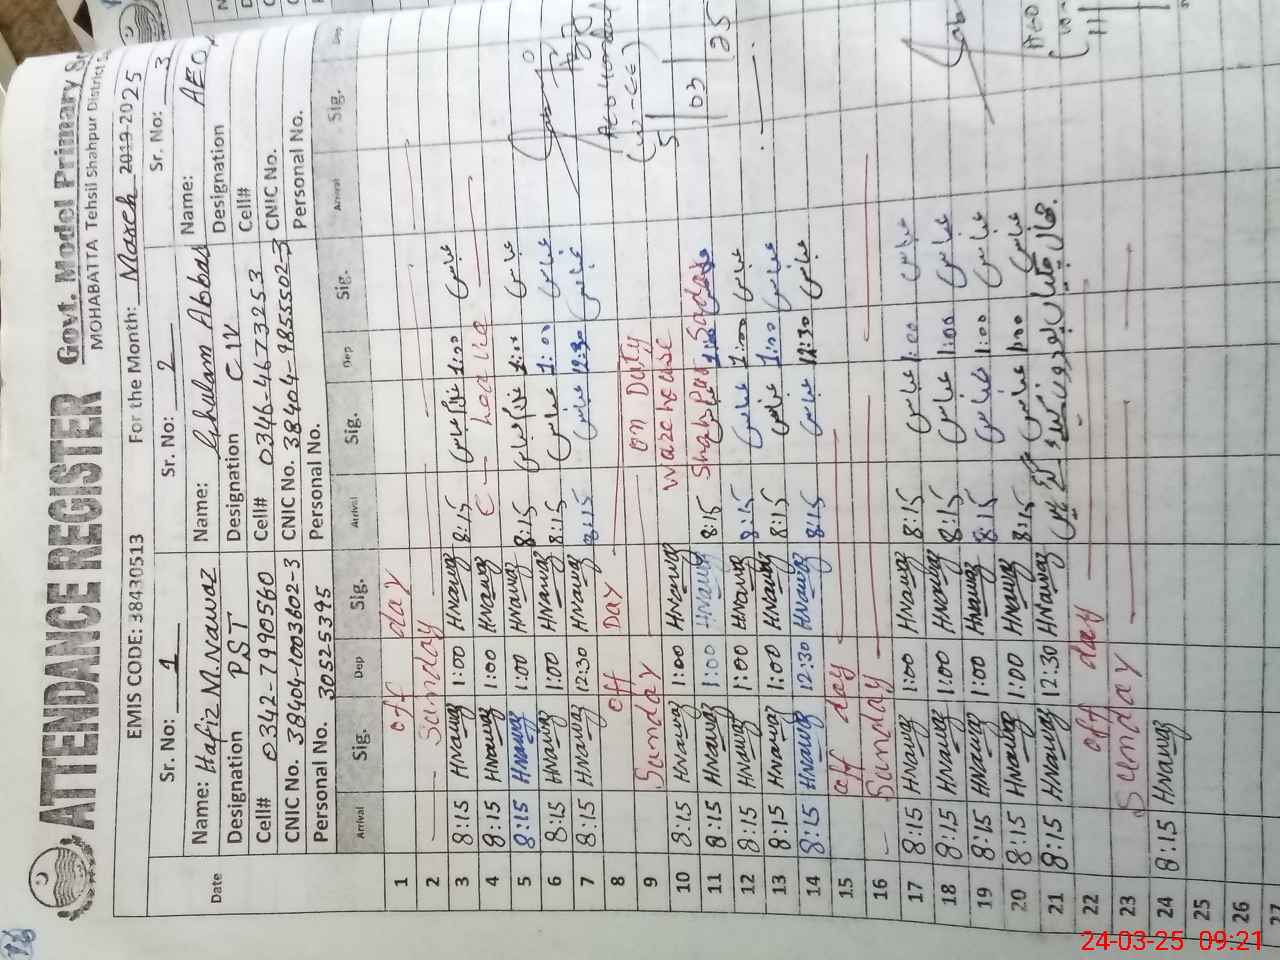 ATTENDANCE REGISTER Govt. Model Primary
MOHABATTA Tehsil Shahpur District
EMIS CODE: 38430513 For the Month: March 2019-2025
Sr. No: 1 Sr. No: 2 Sr. No: 3
Name: Hafiz M.Nawaz Name: Ghulam Abbas Name: AEO
Designation PST Designation C.IV Designation
Cell# 0342-7990560 Cell# 0346-4673253 Cell#
CNIC No. 38404-1003602-3 CNIC No. 38404-9855502-3 CNIC No.
Personal No. 30525395 Personal No. Personal No.
Date Arrival Sig. Dep Sig. Arrival Sig. Dep Sig. Arrival Sig. Dep
1 off day
2 Sunday
3 8:15 HNawaz 1:00 HNawaz 8:15 1:00 عباس
4 8:15 HNawaz 1:00 HNawaz
5 8:15 HNawaz 1:00 HNawaz 8:15 1:00 عباس
6 8:15 HNawaz 1:00 HNawaz 8:15 عباس 1:00 عباس
7 8:15 HNawaz 12:30 HNawaz 8:15 عباس 12:30 عباس
8 off Day
9 Sunday on Duty
10 8:15 HNawaz 1:00 HNawaz warehouse
11 8:15 HNawaz 1:00 HNawaz 8:15 Shahpur Sadar
12 8:15 HNawaz 1:00 HNawaz 8:15 عباس 1:00 عباس
13 8:15 HNawaz 1:00 HNawaz 8:15 عباس 1:00 عباس
14 8:15 HNawaz 12:30 HNawaz 8:15 عباس 12:30 عباس
15 off day
16 Sunday
17 8:15 HNawaz 1:00 HNawaz 8:15 عباس 1:00 عباس
18 8:15 HNawaz 1:00 HNawaz 8:15 عباس 1:00 عباس
19 8:15 HNawaz 1:00 HNawaz 8:15 عباس 1:00 عباس
20 8:15 HNawaz 1:00 HNawaz 8:15 عباس 1:00 عباس
21 8:15 HNawaz 12:30 HNawaz
22 off day
23 Sunday
24 8:15 HNawaz
25
26
27
5/03/25
24-03-25 09:21